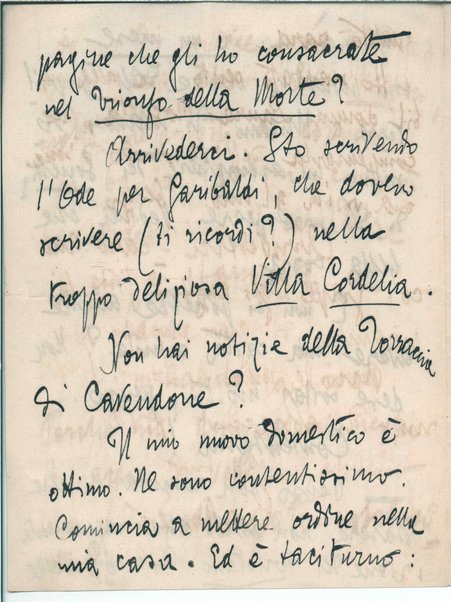 pagine che gli ho consacrate
nel Trionfo della Morte?
Arrivederci. Sto scrivendo
l'Ode per Garibaldi, che dovevo
scrivere (ti ricordi?) nella
troppo deliziosa Villa Cordelia.
Non hai notizie della Torraccia
di Cavendone?
Il mio nuovo domestico è
ottimo. Ne sono contentissimo.
Comincia a mettere ordine nella
mia casa. Ed è taciturno: